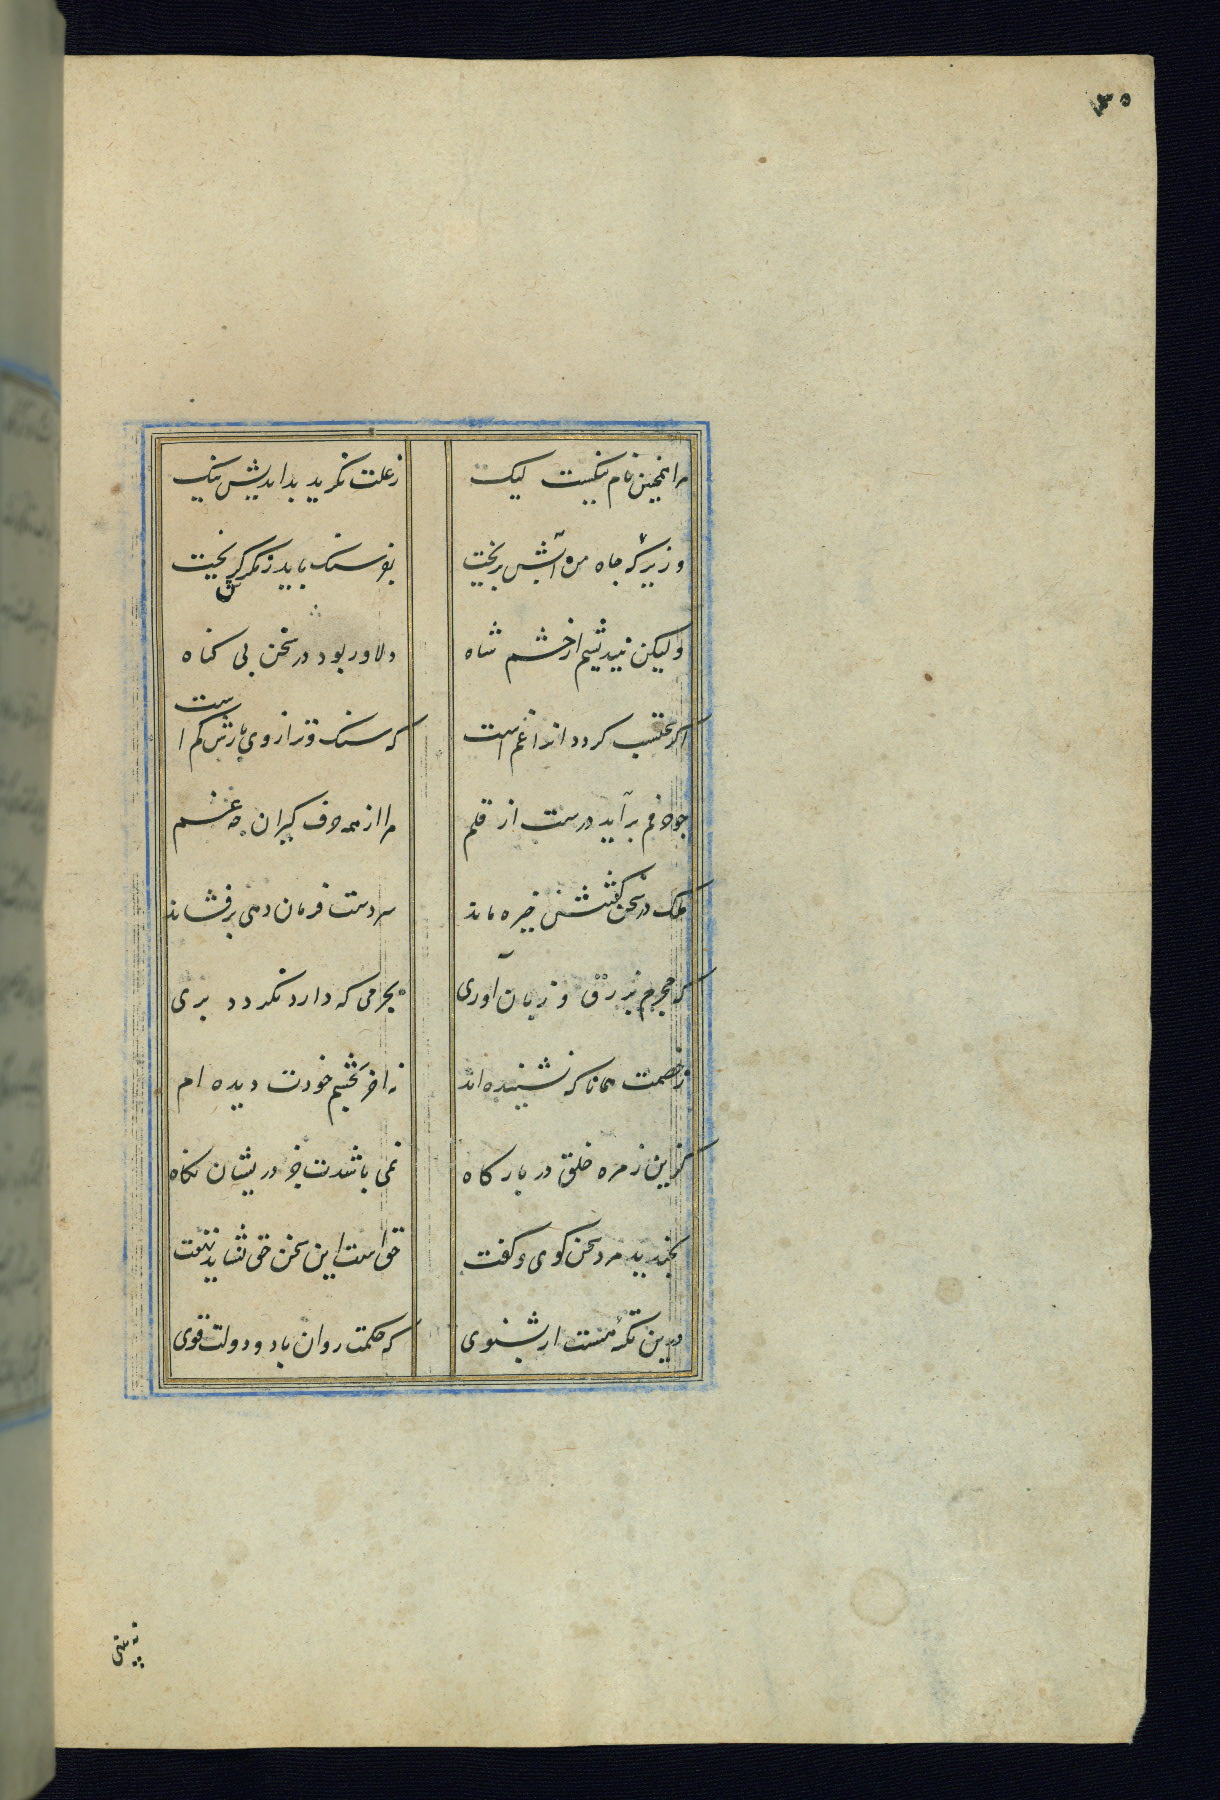 ۳۵
مرا همچنین نام نیکست لیک
زعلت نگوید بداندیش نیک
وزیری که جاه من آبش بریخت
بفرسنک باید زمکرش گریخت
ولیکن نیندیشم از خشم شاه
دلاور بود در سخن بی کناه
اگر محتسب کردد آنرا غم است
که سنک ترازوی بارش کم است
چو حرفم برآید درست از قلم
مرا از همه حرف کیران چه غم
ملک در سخن کفتنش خیره ماند
سر دست فرمان دهی برفشاند
که مجرم بزرق و زبان آوری
بجرمی که دارد نکردد بری
زخصمت همانا که نشنیده‌ام
نه آخر بچشم خودت دیده ام
کزین زمره خلق در بارکاه
نمی باشدت جز در یشان نکاه
بخندید مرد سخن کوی و کفت
حق است این سخن حق نشاید نهفت
درین نکته هست ار بشنوی
که حکمت روان باد و دولت قوی
نه بینی